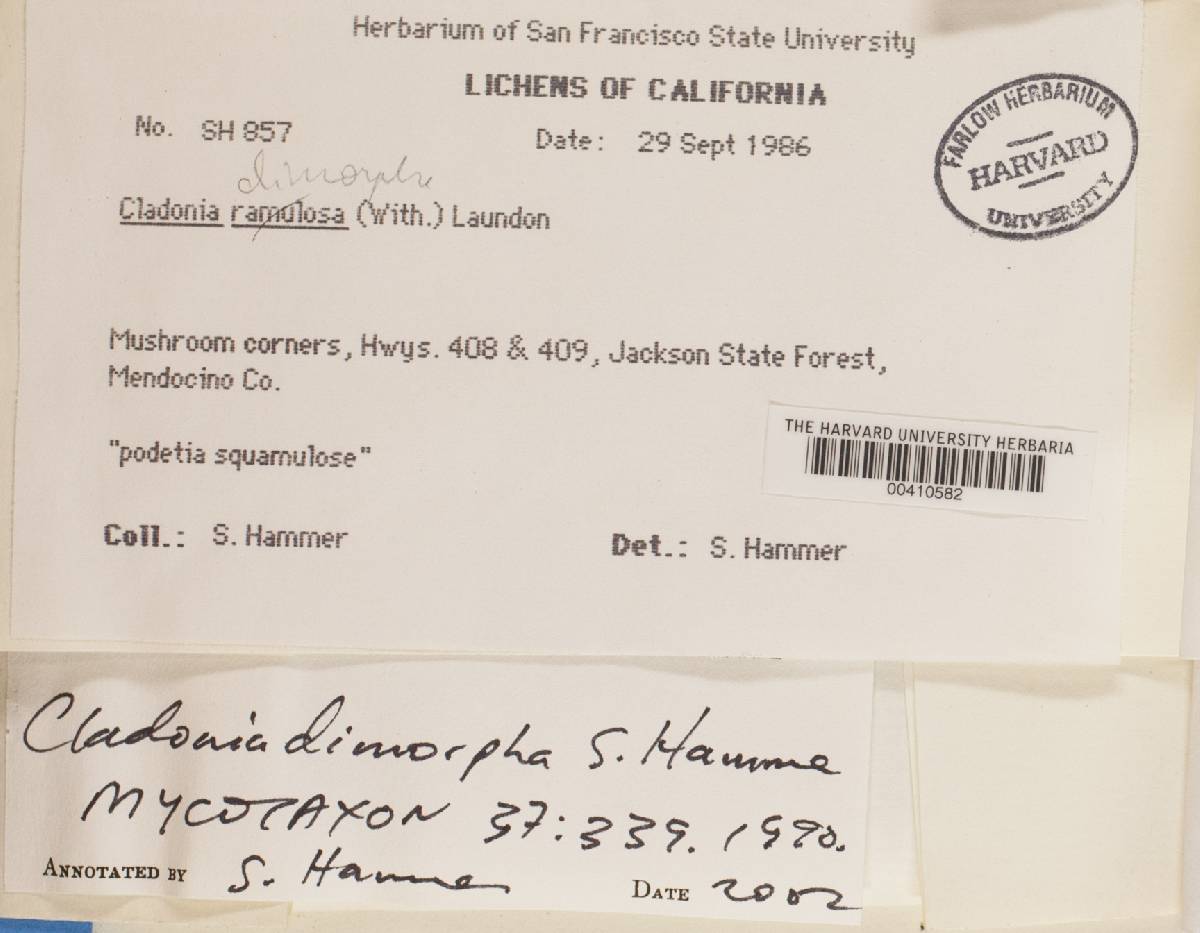 Herbarium of San Francisco State University
LICHENS OF CALIFORNIA
No. SH 857
Date: 29 Sept 1986
dimorpha
Cladonia ramulosa (With.) Laundon
FARLOW HERBARIUM
HARVARD
UNIVERSITY
Mushroom corners, Hwys. 408 & 409, Jackson State Forest,
Mendocino Co.
THE HARVARD UNIVERSITY HERBARIA
00410582
"podetia squamulose"
Coll.: S. Hammer
Det.: S. Hammer
Cladonia dimorpha S. Hammer
MYCOTAXON 37:339. 1990.
ANNOTATED BY S. Hammer DATE 2002